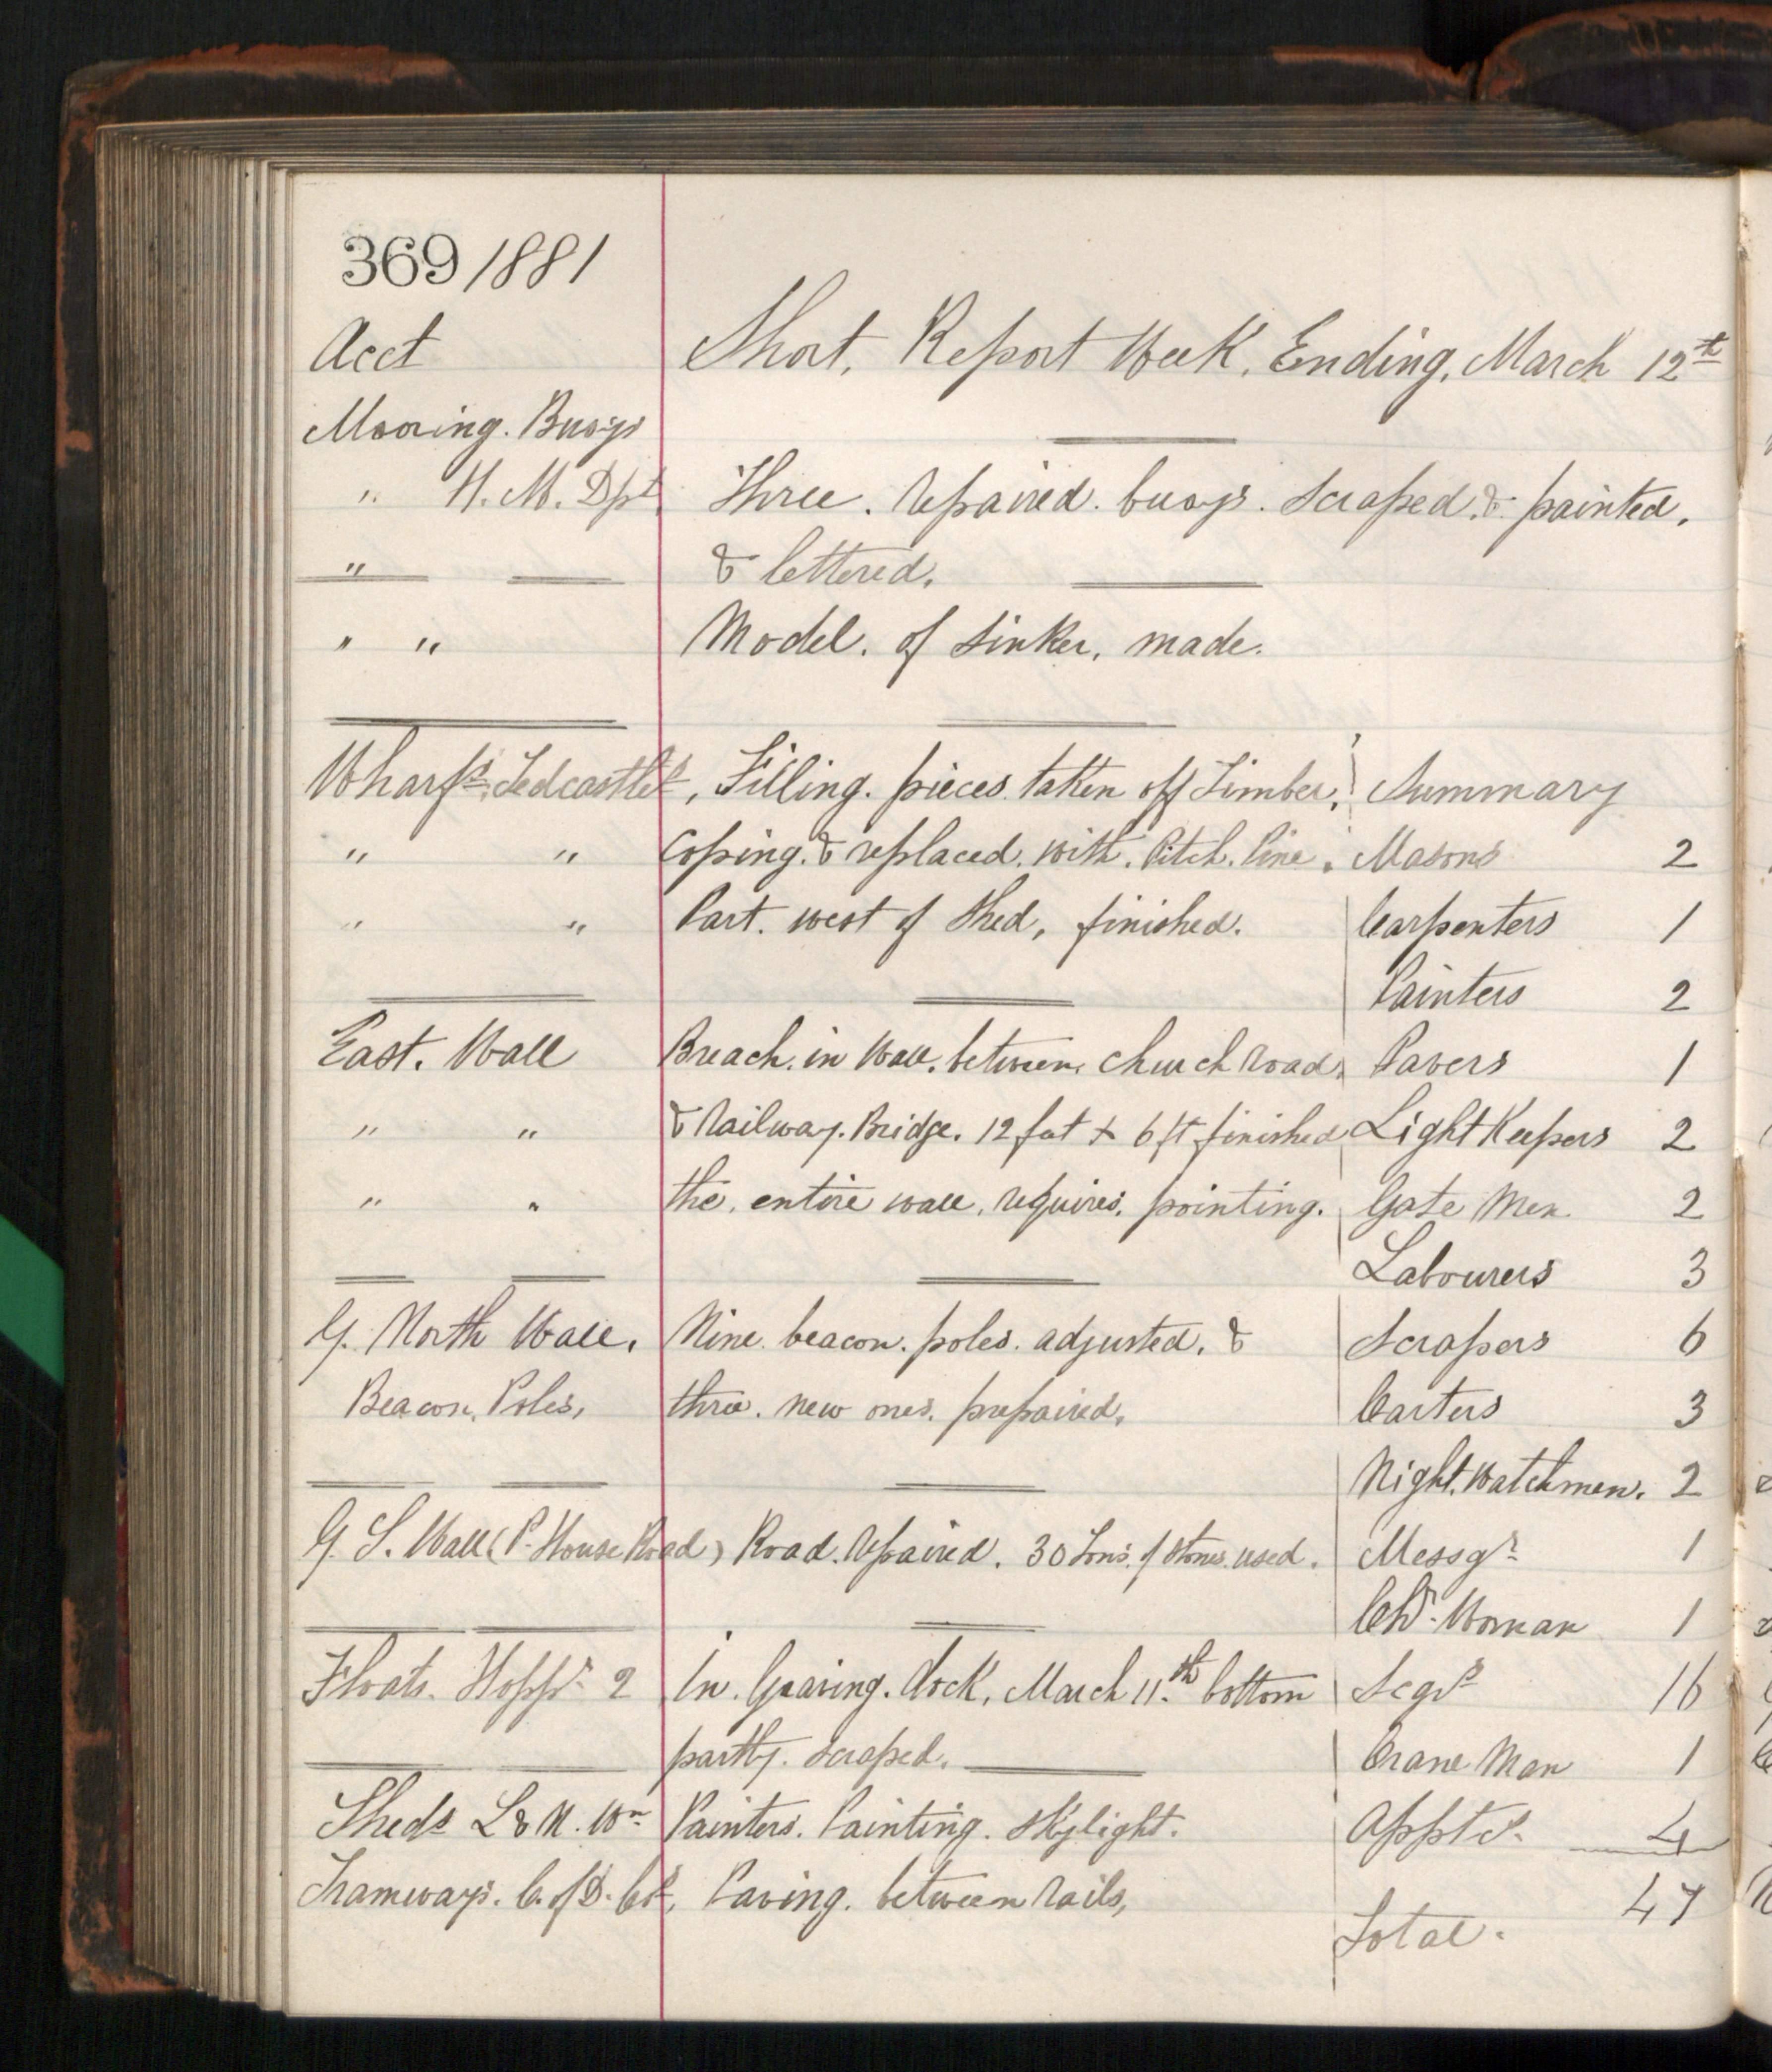 369 1881
Acct
Short, Report Week, Ending, March 12th
Mooring. Buoys
" H. M. Dpt Three. repaired. buoys. scraped. & painted,
" & lettered.
" " Model. of sinker, made.
Wharfs. Tedcastles, Filling. pieces. taken off Timber, Summary
" " Coping. & replaced. with. Pitch. Pine. Masons 2
" " Part. west of Shed, finished. Carpenters 1
Painters 2
East. Wall Breach. in Wall. between. church road, Pavers 1
" " & railway. Bridge. 12 feet x 6 ft finished Light Keepers 2
" " the. entire wall, requires, pointing. Gate Men 2
Labourers 3
G. North Wall, Nine. beacon. poles. adjusted. & Scrapers 6
Beacon. Poles, three. new ones. prepaired, Carters 3
Night. Watchmen. 2
G. S. Wall (P. House Road) Road. repaired. 30 Tons. of stones. used. Messgr 1
Ch. Woman 1
Floats. Hoppr 2 In. Graving. dock. March 11.th bottom 16
partly. scraped. Crane Man 1
Sheds L & N. Wn Painters. Painting. skylight. Apptcs. 4
Tramways. C. of D. Paving. between rails, 47
Total.